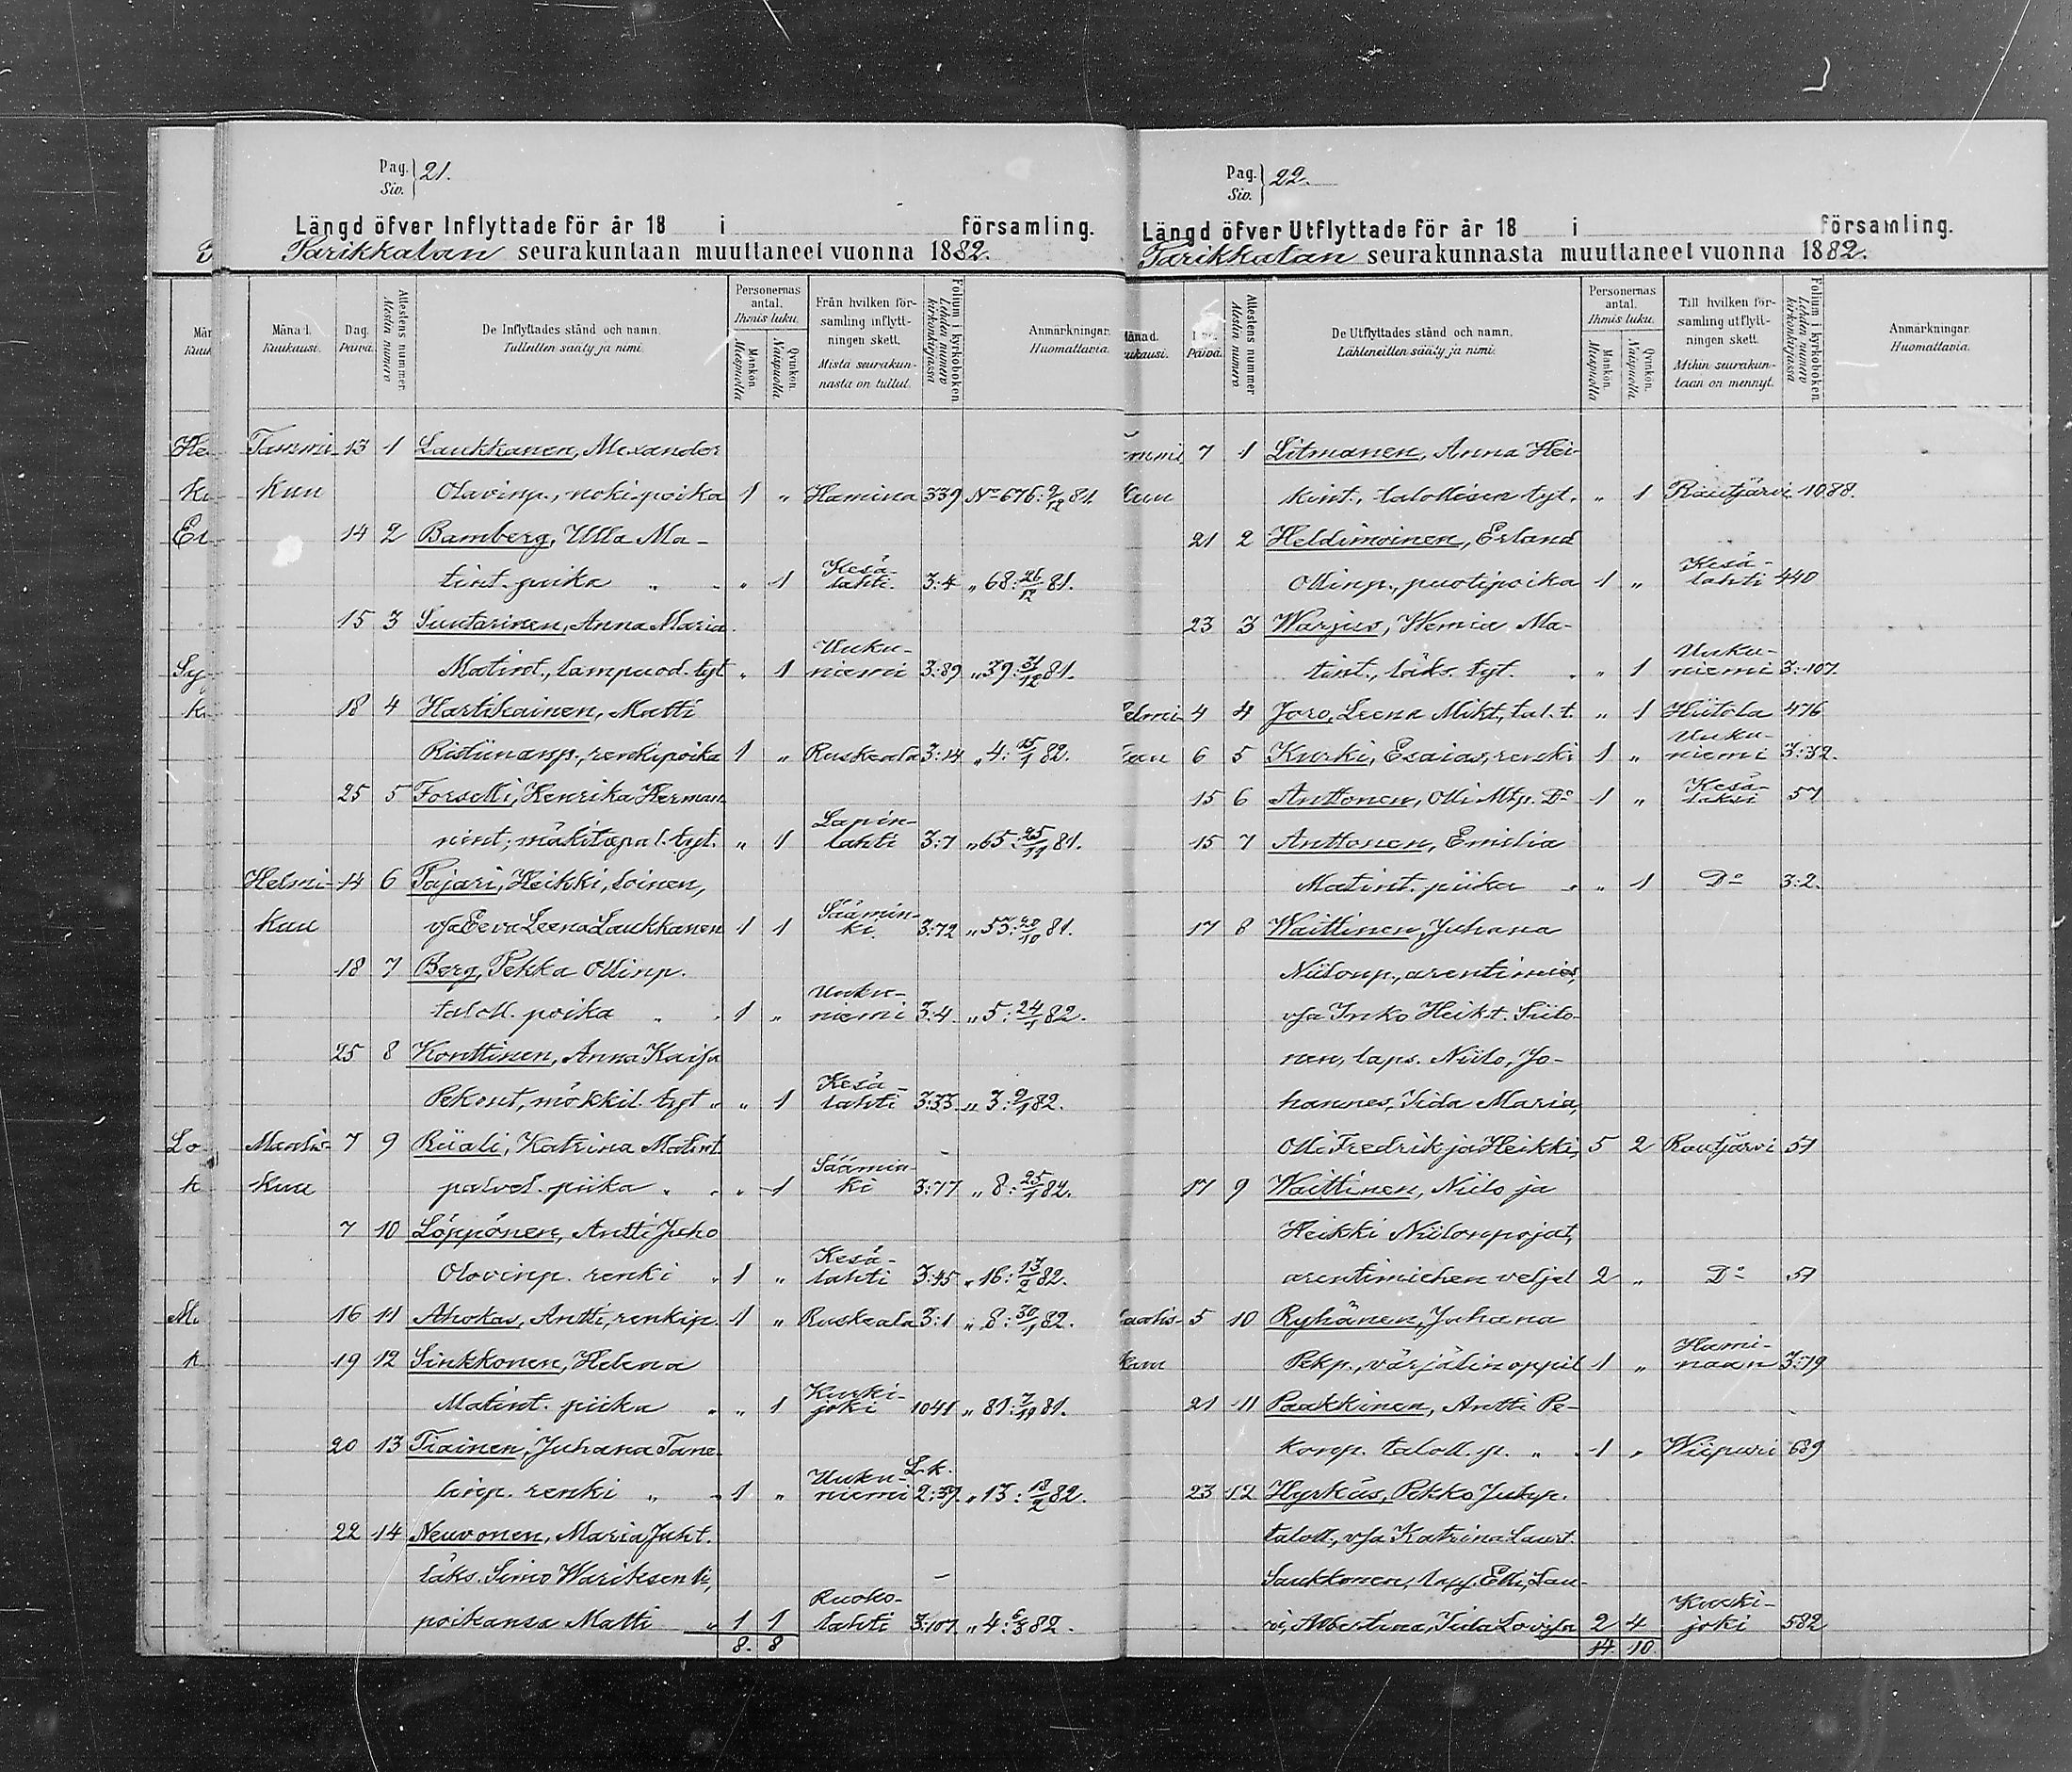 Pag. Siv. } 21.
Längd öfver Inflyttade för år 18 i församling.
Parikkalan seurakuntaan muuttaneet vuonna 1882.
Månad. Kuukausi. Dag. Päivä. Attestens nummer Alestin numero De Inflyttades stånd och namn. Tulleitten sääty ja nimi. Personernas antal. Ihmis luku. Mankön. Miespuolia Qvinkön. Naispuolia Från hvilken församling inflyttningen skett. Mista seurakunnasta on tullut. Folium i kyrkoboken. Lehden numero kirkonkirjassa Anmärkningar. Huomattavia.
Tammi- 13 1 Laukkanen, Alexander
kuu Olavinp., nokipoika 1 " Hamina 339 No 676: 9/12 81.
14 2 Bamberg, Ulla Ma-
tint. piika " 1 Kesälahti. 3:4 " 68: 26/12 81.
15 3 Suutarinen, Anna Maria
Matint., lampuod. tyt " 1 Uukuniemi 3:89 " 39: 31/12 81.
18 4 Hartikainen, Matti
Ristiinanp., renkipoika 1 " Ruskeala 3:14 " 4: 15/1 82.
25 5 Forselli, Henrika Herman-
nint; mäkitupal. tyt. " 1 Lapinlahti 3:7 " 65: 25/11 81.
Helmi- 14 6 Pajari, Heikki, loinen,
kuu v/a Eeva Leena Laukkanen 1 1 Sääminki. 3:72 " 53: 28/10 81.
18 7 Berg, Pekka Ollinp.
taloll. poika 1 " Uukuniemi 3:4. " 5: 24/1 82.
25 8 Konttinen, Anna Kaisa
Pekont, mökkil. tyt " 1 Kesälahti 3:33. " 3: 9/1 82.
Maalis- 7 9 Riiali, Katrina Matint
kuu palvel. piika " 1 Sääminki 3:77 " 8: 25/1 82.
7 10 Löppönen, Antti Juho
Olovinp. renki 1 " Kesälahti 3:45 " 16: 13/2 82.
16 11 Ahokas, Antti, renkip. 1 " Ruskeala 3:1 " 8: 30/1 82.
19 12 Sinkkonen, Helena
Matint. piika " 1 Kurkijoki 1041 " 81: 81.
20 13 Tiainen, Juhana Tane-
linp. renki 1 " Uukuniemi L.k. 2:37. " 13: 18/2 82.
22 14 Neuvonen, Maria Juht.
läks. Simo Wariksen
poikansa Matti 1 1 Ruokolahti 3:107. " 4: 6/3 82.
8. 8
Pag. Siv. } 22.
Längd öfver Utflyttade för år 18 i församling.
Parikkalan seurakunnasta muuttaneet vuonna 1882.
Månad. Kuukausi. Päivä. Attestens nummer Alestin numero De Utflyttades stånd och namn. Lähteneitten sääty ja nimi. Personernas antal. Ihmis luku. Mankön. Miespuolia Qvinkön. Naispuolia Till hvilken församling utflyttningen skett. Mihin seurakuntaan on mennyt. Folium i kyrkoboken. Lehden numero kirkonkirjassa Anmärkningar. Huomattavia.
7 1 Litmanen, Anna Hei-
kuu kint., talollisen tyt. " 1 Rautjärvi 1088.
21 2 Heldimoinen, Erland
Ollinp., puotipoika 1 " Kesälahti 440
23 3 Warjus, Hemia Ma-
tint., läks. tyt. " 1 Uukuniemi 3:107.
4 4 Joro, Leena Mikt, tal. t. " 1 Hiitola 476
6 5 Kurki, Esaias, renki 1 " Uukuniemi 3:32.
15 6 Anttonen, Olli Mtp. Do 1 " Kesälaksi 57
15 7 Anttonen, Emilia
Matint. piika " 1 Do 3:2.
17 8 Waittinen, Juhana
Niilonp., arentimies,
v/a Inko Heikt. Siito-
nen, laps. Niilo, Jo-
hannes, Iida Maria,
Olli Fredrik ja Heikki, 5 2 Rautjärvi 57
17 9 Waittinen, Niilo ja
Heikki Niilonpojat,
arentimiehen veljet 2 " Do 57
5 10 Ryhänen, Juhana
kuu Pekp., värjälin oppil 1 " Haminaan 3:19
21 11 Paakkinen, Antti Pe-
konp. taloll. p. 1 " Wiipuri 689
23 12 Hyrkäs, Pekko Juhp.
taloll., v/a Katrina Laurt.
Saukkonen, laps. Elli, Lau-
ri, Albertina, Iida Lovisa 2 4 Kurkijoki 582
14. 10.